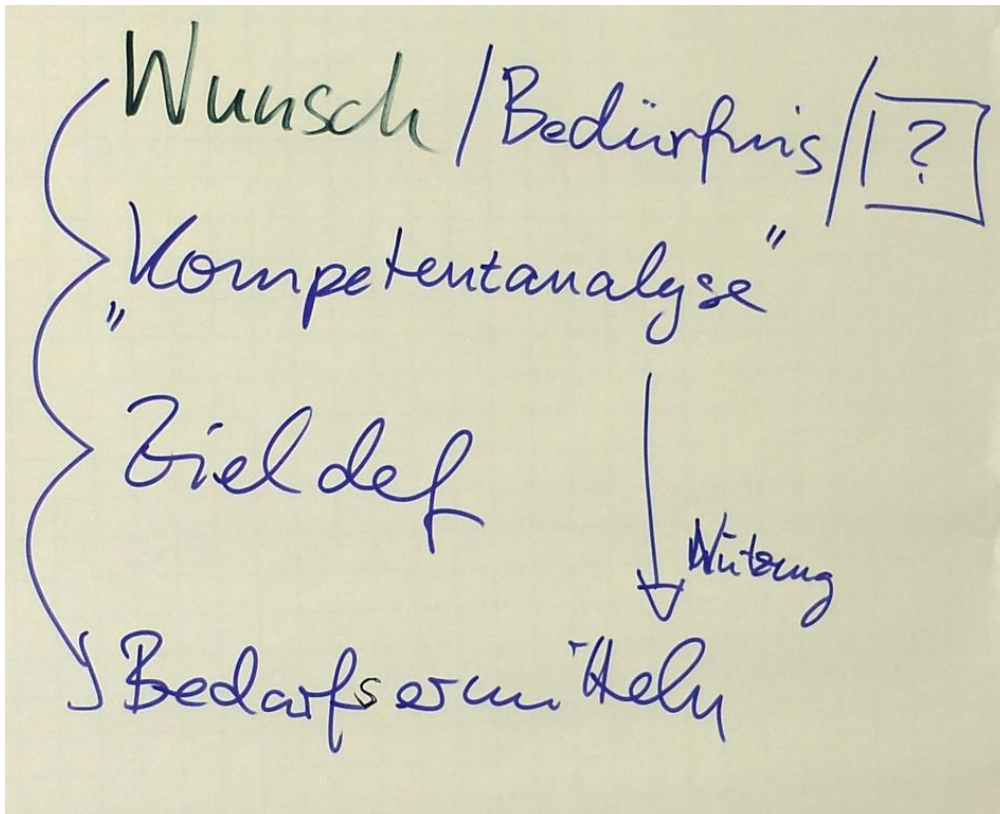 Wunsch / Bedürfnis / ?
"Kompetentanalyse"
Zieldef
Nutzung
Bedarfsermitteln